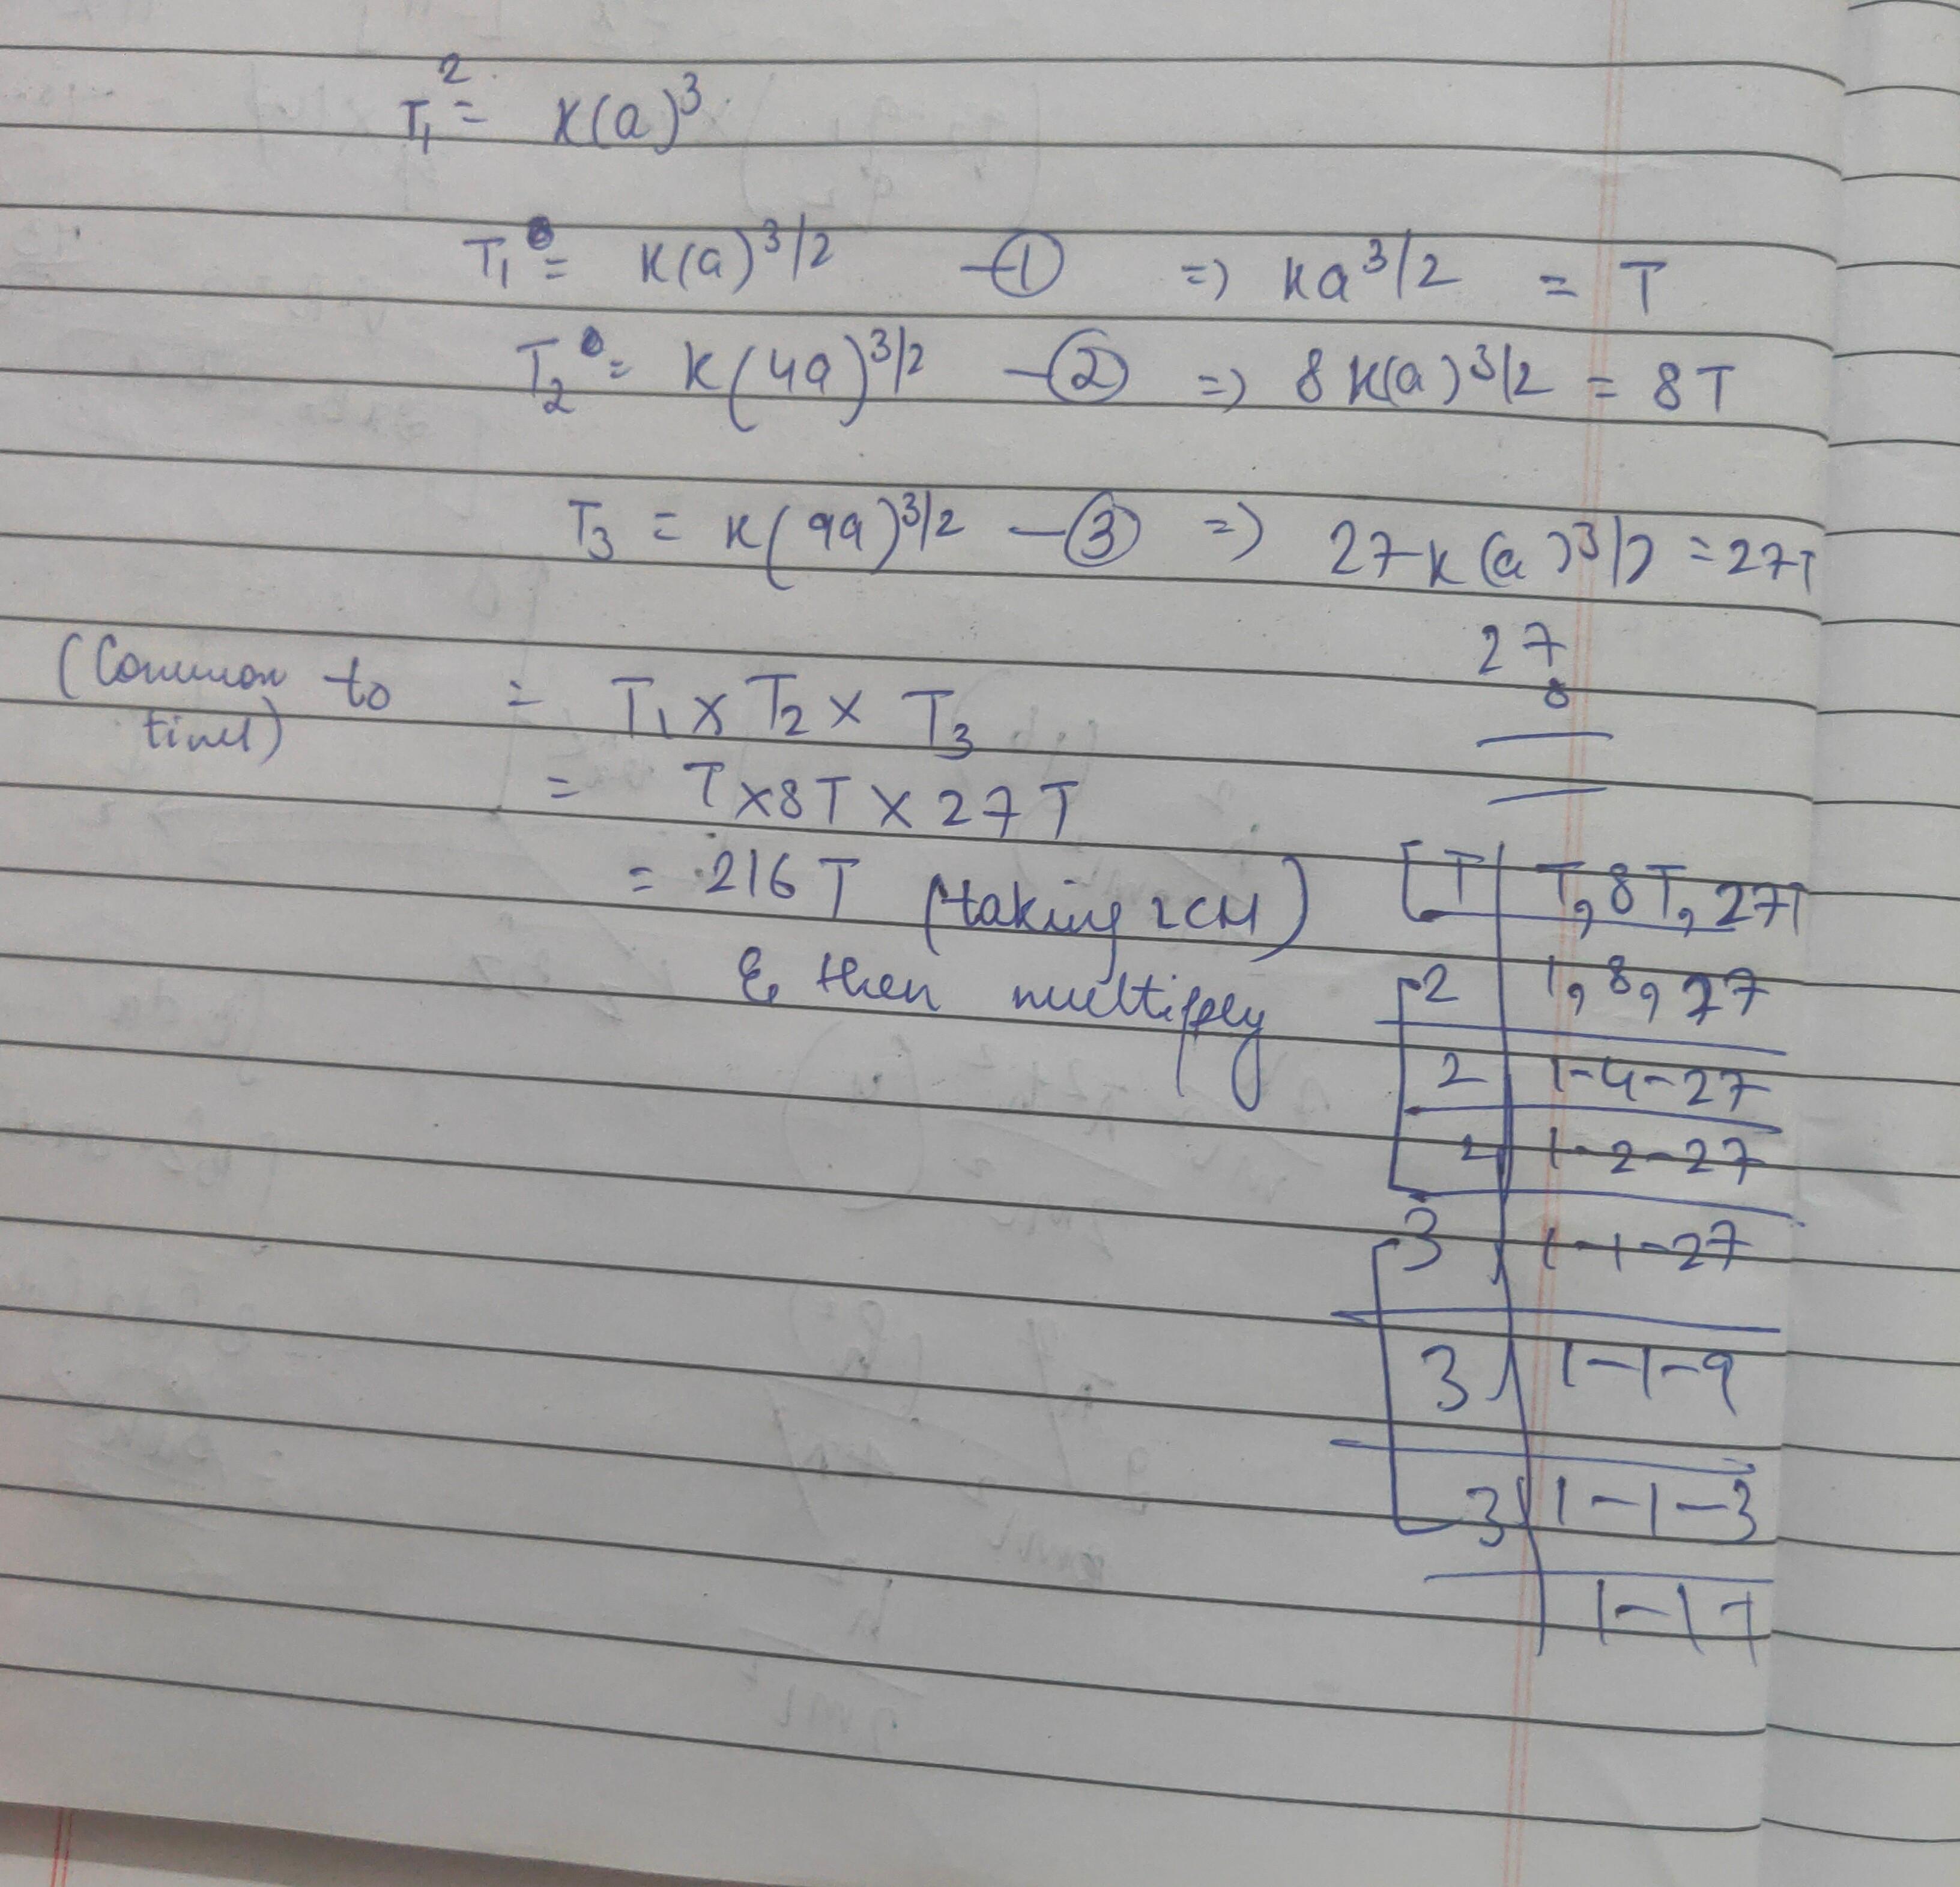 T₁² = K(a)³
T₁ = K(a)^3/2 — ① => Ka^3/2 = T
T₂ = K(4a)^3/2 — ② => 8K(a)^3/2 = 8T
T₃ = K(9a)^3/2 — ③ => 27K(a)^3/2 = 27T
27
8
(Common to = T₁ × T₂ × T₃
time)
= T×8T×27T
= 216T (taking LCM)
& then multiply
T | T, 8T, 27T
2 | 1, 8, 27
2 | 1-4-27
2 | 1-2-27
3 | 1-1-27
3 | 1-1-9
3 | 1-1-3
1-1-1